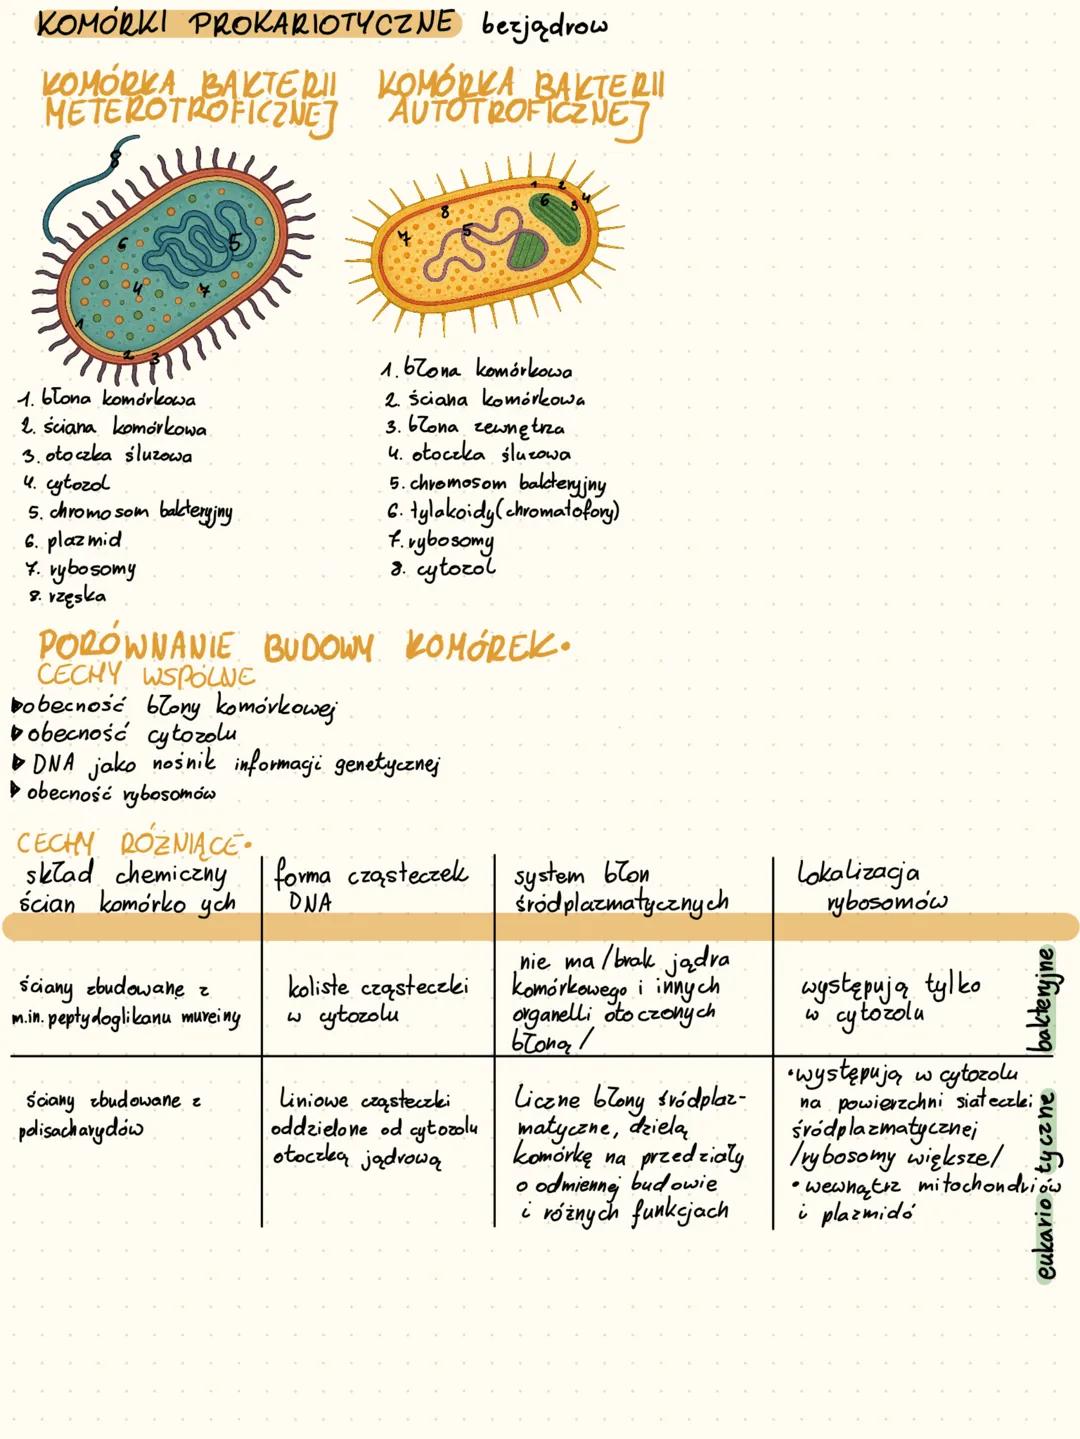 KOMÓRKI PROKARIOTYCZNE bezjądrow
KOMÓRKA BAKTERII
METEROTROFICZNEJ
KOMÓRKA BAKTERII
AUTOTROFICZNEJ
8
6
5
4
7
1
2
3
1
2
6
3
4
8
5
7
1. błona komórkowa
2. ściana komórkowa
3. otoczka śluzowa
4. cytozol
5. chromosom bakteryjny
6. plazmid
7. rybosomy
8. rzęska
1. błona komórkowa
2. ściana komórkowa
3. błona zewnętrza
4. otoczka śluzowa
5. chromosom bakteryjny
6. tylakoidy (chromatofory)
7. rybosomy
8. cytozol
PORÓWNANIE BUDOWY KOMÓREK.
CECHY WSPÓLNE
obecność błony komórkowej
obecność cytozolu
DNA jako nośnik informacji genetycznej
obecność rybosomów
CECHY RÓŻNIĄCE.
skład chemiczny
ścian komórko ych
forma cząsteczek
DNA
system błon
śródplazmatycznych
lokalizacja
rybosomów
ściany zbudowane z
m.in. peptydoglikanu mureiny
koliste cząsteczki
w cytozolu
nie ma /brak jądra
komórkowego i innych
organelli otoczonych
błoną/
występują tylko
w cytozolu
bakteryjne
ściany zbudowane z
polisacharydów
Liniowe cząsteczki
oddzielone od cytozolu
otoczką jądrową
Liczne błony śródplaz-
matyczne, dzielą
komórkę na przedziały
o odmiennej budowie
i różnych funkcjach
•występują w cytozolu
na powierzchni siateczki
śródplazmatycznej
/rybosomy większe/
•wewnątrz mitochondriów
i plazmidó
eukariotyczne